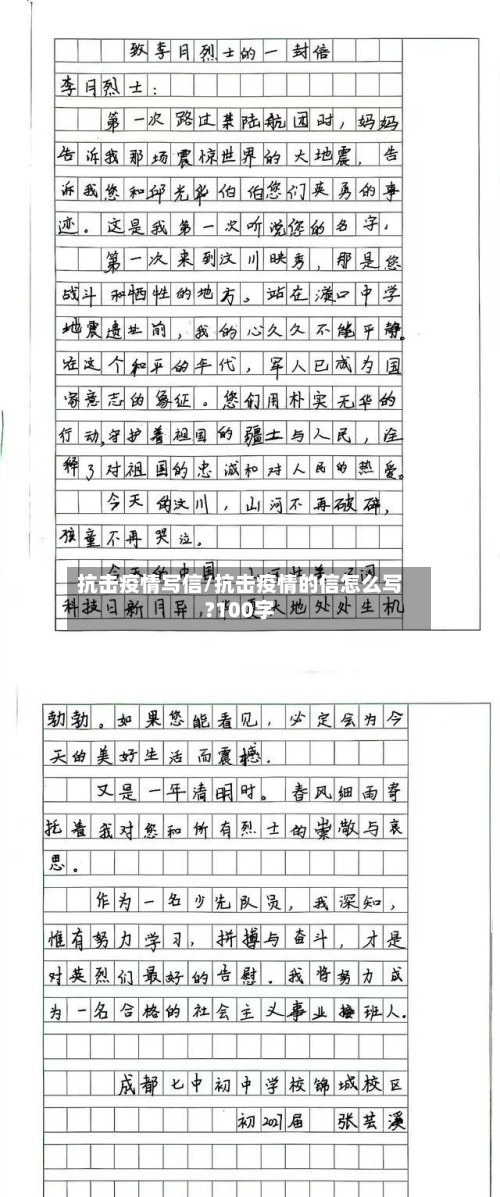 致李月烈士的一封信
李月烈士:
第一次路过某陆航团时,妈妈
告诉我那场震惊世界的大地震,告
诉我您和邱光华伯伯您们英勇的事
迹。这是我第一次听说您的名字,
第一次来到汶川映秀,那是您
战斗和牺牲的地方。站在漩口中学
地震遗址前,我的心久久不能平静。
在这个和平的年代,军人已成为国
家意志的象征。您们用朴实无华的
行动,守护着祖国的疆土与人民,诠
释了对祖国的忠诚和对人民的热爱。
今天的汶川,山河不再破碎,
孩童不再哭泣。
今天的中国
抗击疫情写信/抗击疫情的信怎么写
科技日新月异,大地处处生机
?100字
勃勃。如果您能看见,必定会为今
天的美好生活而震撼.
又是一年清明时。春风细雨寄
托着我对您和所有烈士的崇敬与哀
思。
作为一名少先队员,我深知,
惟有努力学习,拼搏与奋斗,才是
对英烈们最好的告慰.我将努力成
为一名合格的社会主义事业接班人.
成都七中初中学校锦城校区
初2027届 张芸溪